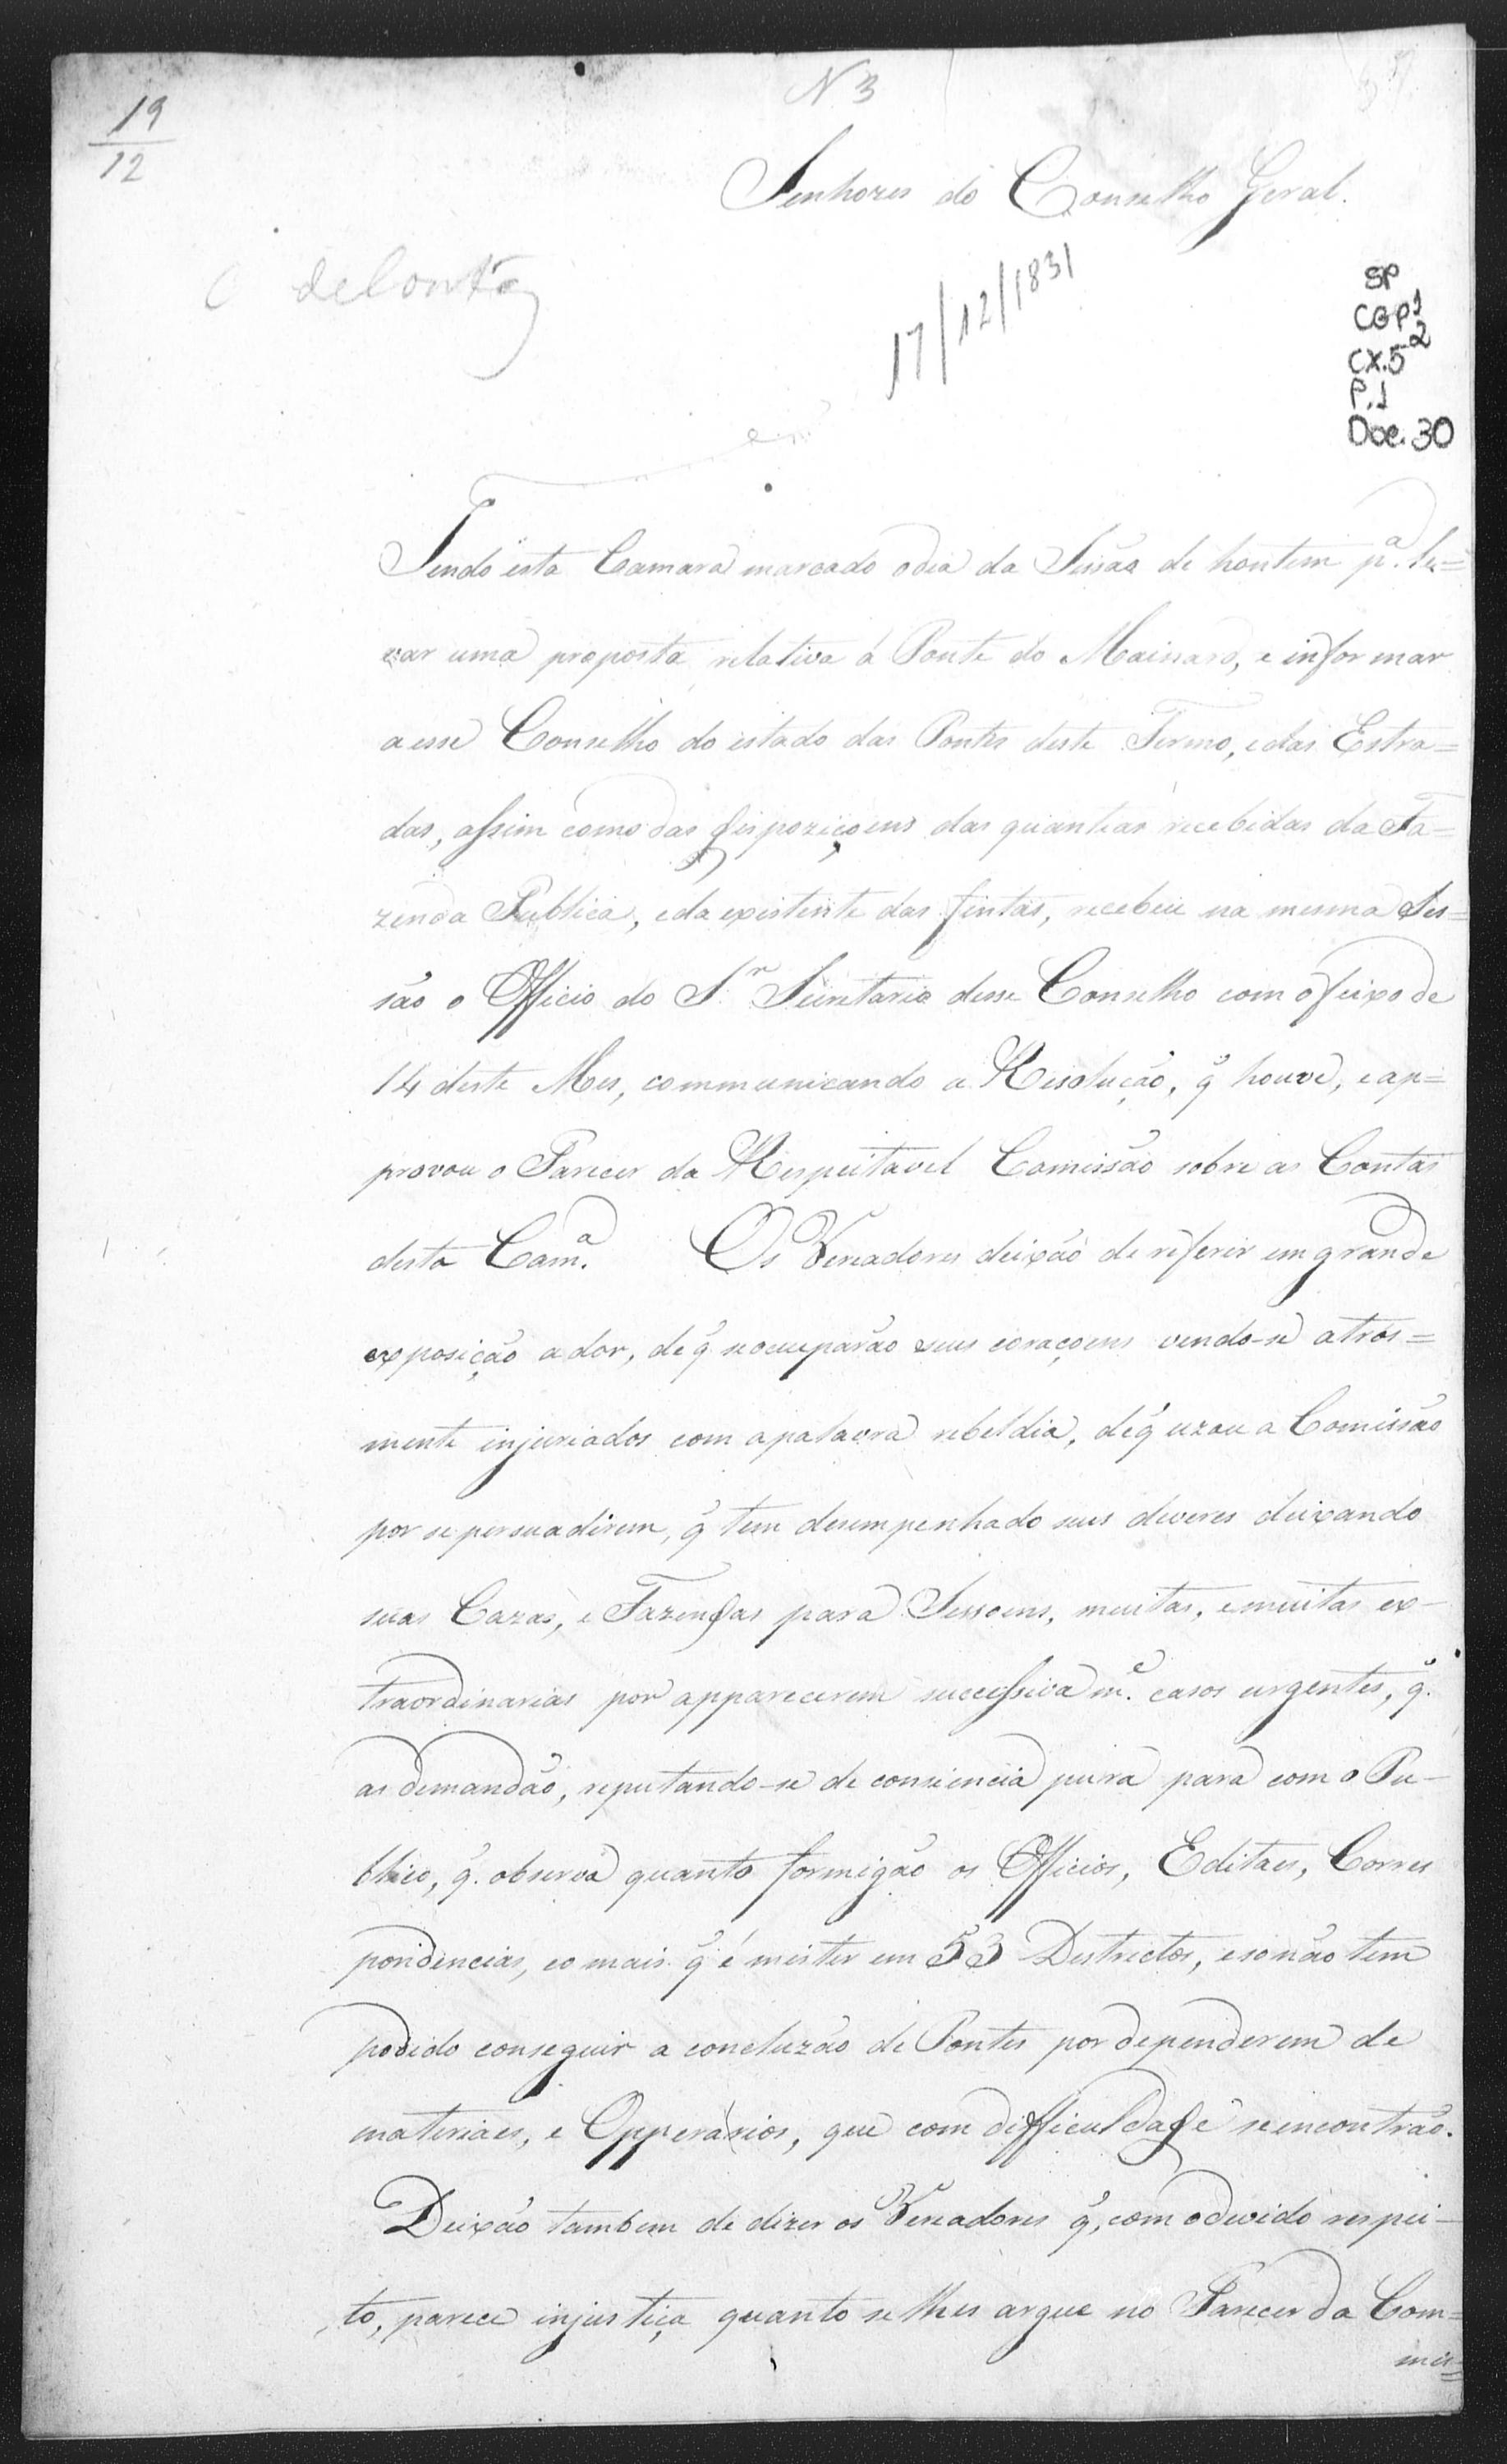 N 3
19
12
Senhores do Conselho Geral.
17/12/1831
SP
CGP1
CX.5-2
P.1
Doc. 30
Tendo esta Camara marcado odia da Sissão de hontem p.ª le=
var uma proposta relativa á Ponte do Mainard, e informar
a esse Conselho do estado das Pontes deste Termo, e das Estra=
das, assim como das dispoziçoens das quantias recebidas da Fa=
zenda Publica, e da existente das fintas, recebeu na mesma Ses=
são o Officio do S.r Secretario desse Conselho com o feixo de
14 deste Mes, communicando a Resolução, q̃ houve, e ap=
provou o Parecer da Respeitavel Comissão sobre as Contas
desta Cam.ª Os Vereadores deixão de referir em grande
exposição a dor, de q̃ se occuparão seus coraçoens vendo-se atros=
mente injuriados com a palavra rebeldia, de q̃ uzou a Comissão
por se persuadirem, q̃ tem desempenhado seus deveres deixando
suas Cazas, e Fazendas para Sessoens, muitas, e muitas ex-
traordinarias por apparecerem successivam.e casos urgentes, q̃.
as demandão, reputando-se de consiencia pura para com o Pu-
blico, q̃. observa quanto formigão os Officios, Editaes, Corres
pondencias, e o mais q̃ é mister em 53 Destrictos, e so não tem
podido conseguir a concluzão de Pontes por dependerem de
materiaes, e Opperarios, que com difficuldade se encontrão.
Deixão tambem de dizer os Vereadores q̃, com o devido respei-
to, parece injustiça quanto se lhes argue no Parecer da Com=
mis=